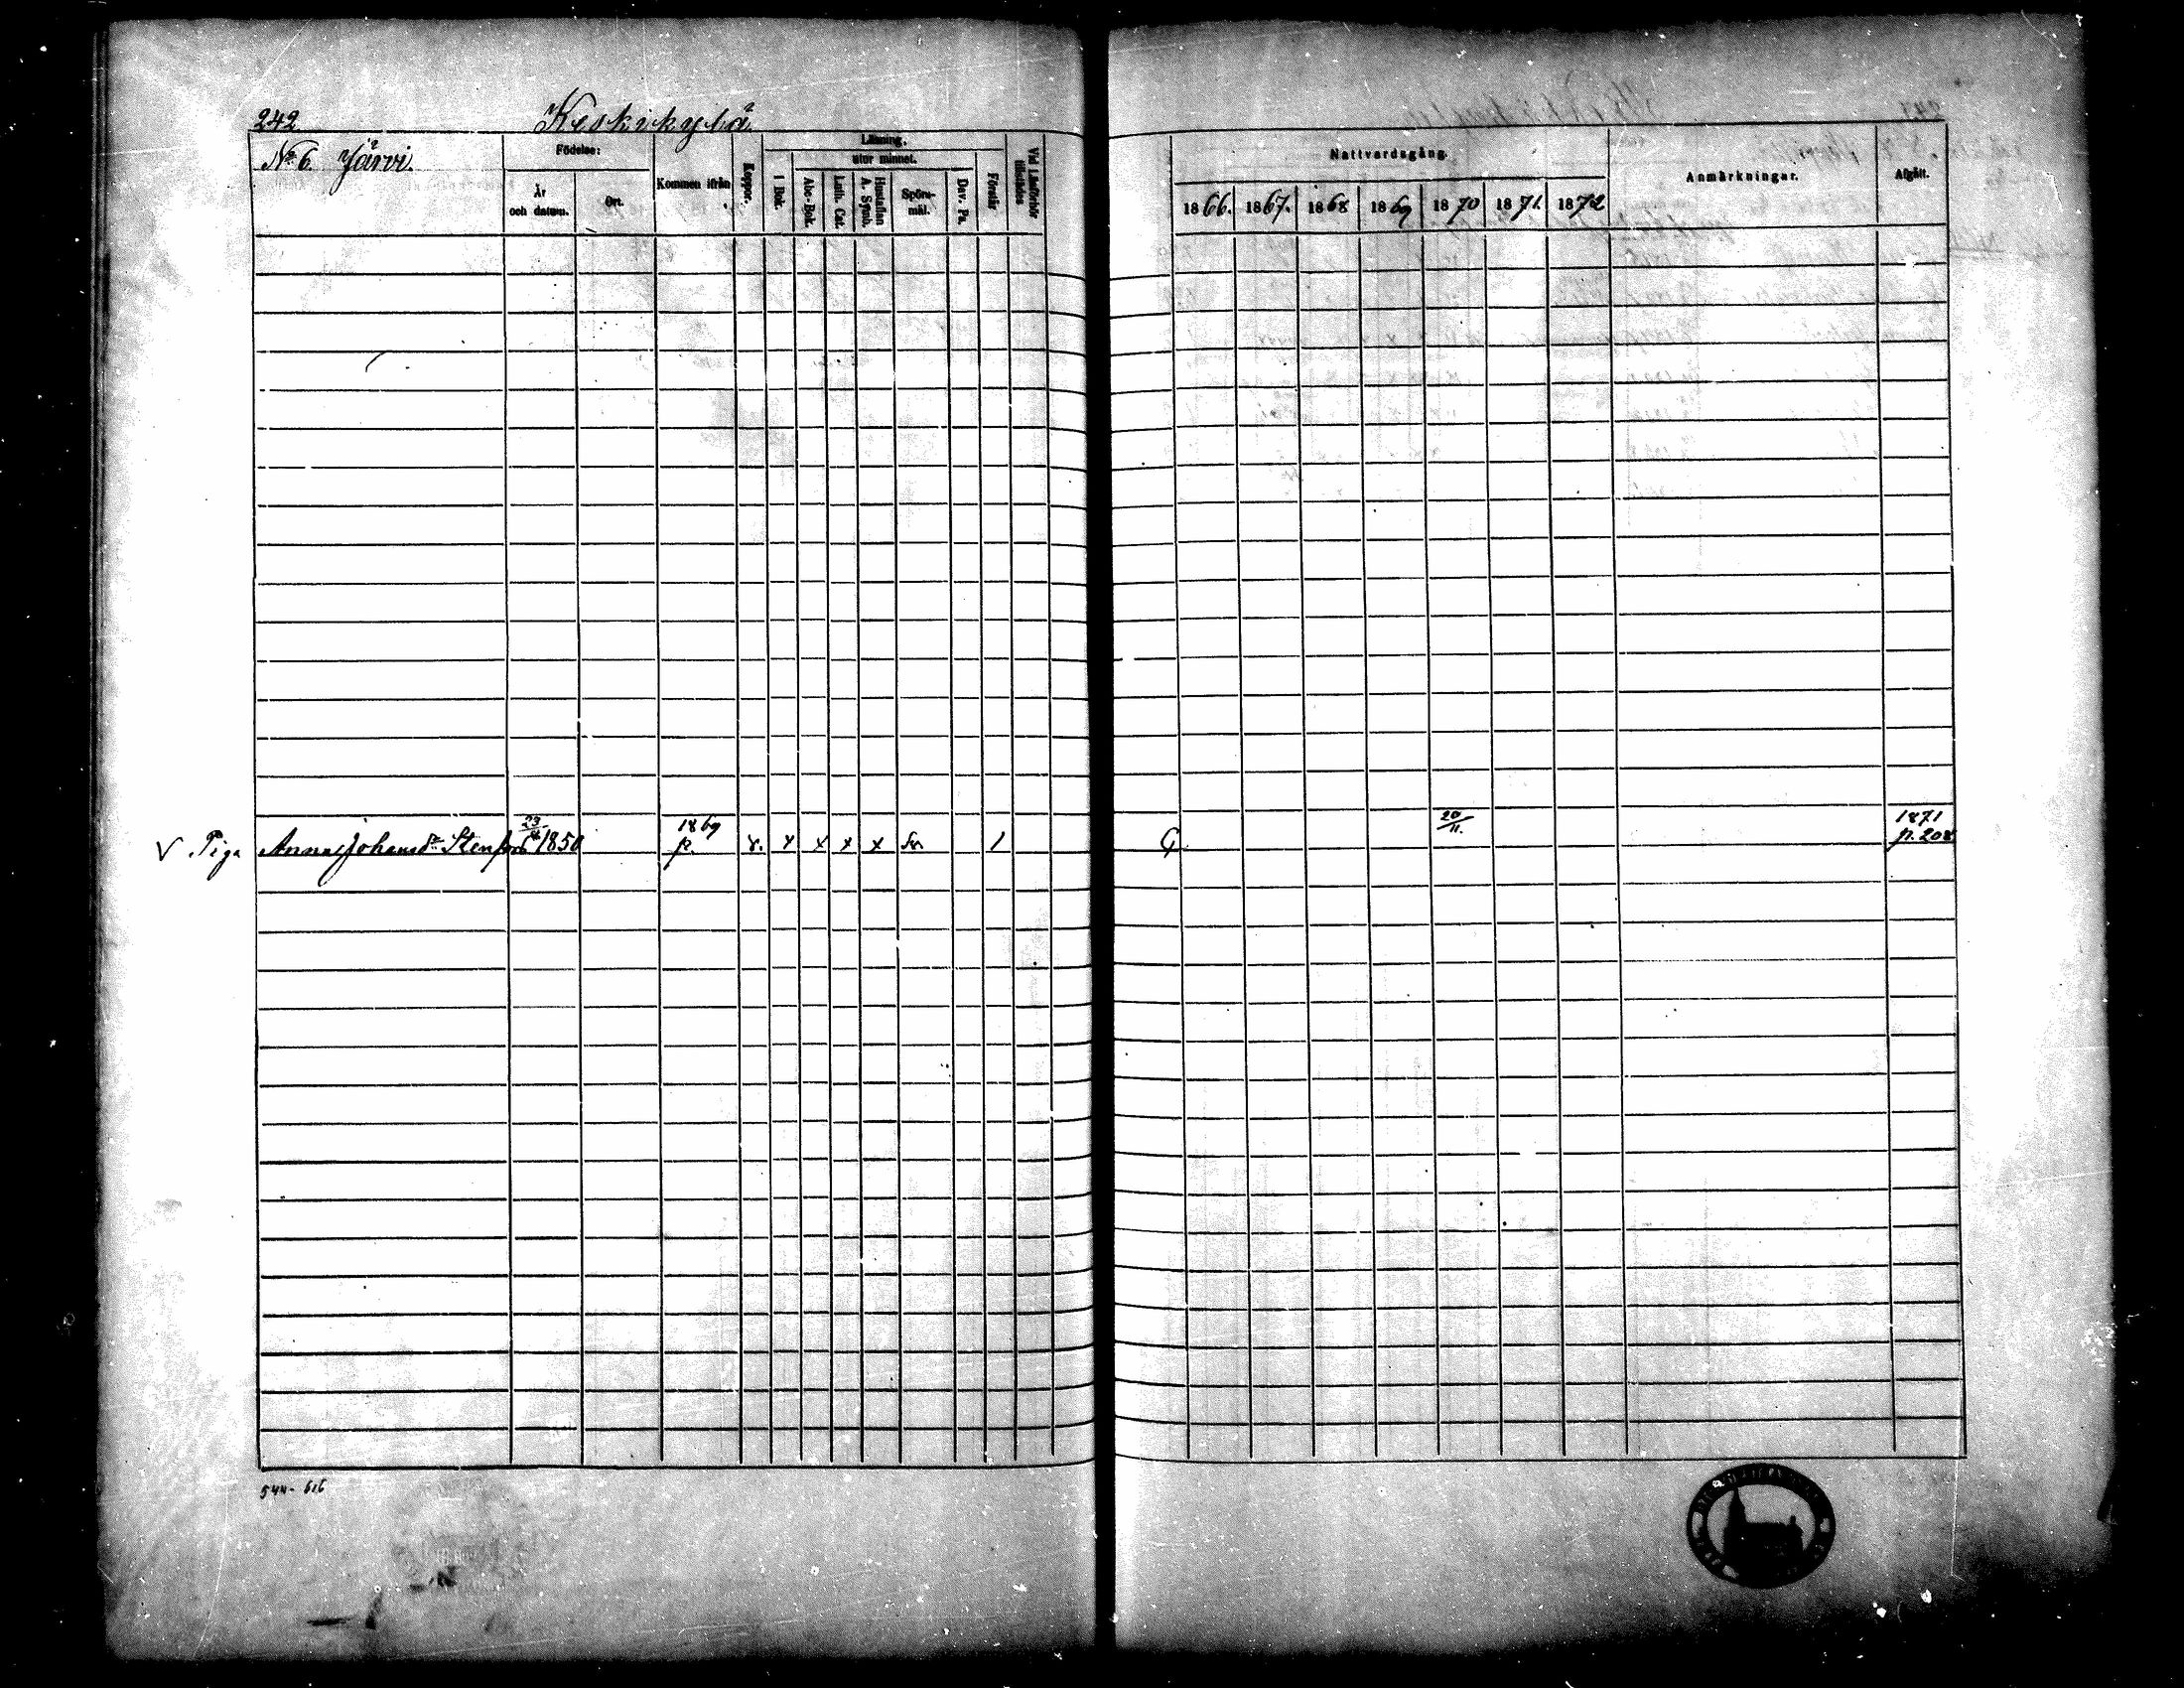 242
Keskikylä
No 6. Järvi.
Födelse:
År och datum.
Ort.
Kommen ifrån
Koppor.
Läsning,
utur minnet.
I Bok.
Abc-Bok.
Luth. Cat.
Hustaflan A. Symb.
Spörsmål.
Dav. Ps.
Förstår
Vid Läsförhör tillstädes
Nattvardsgång.
1866. 1867. 1868 1869 1870 1871. 1872
Anmärkningar.
Afgått.
V Piga Anna Johansdr 23/4 1850 1869 p. x. x x x x Sv. 1 G 20/11. 1871 p. 208
544-616